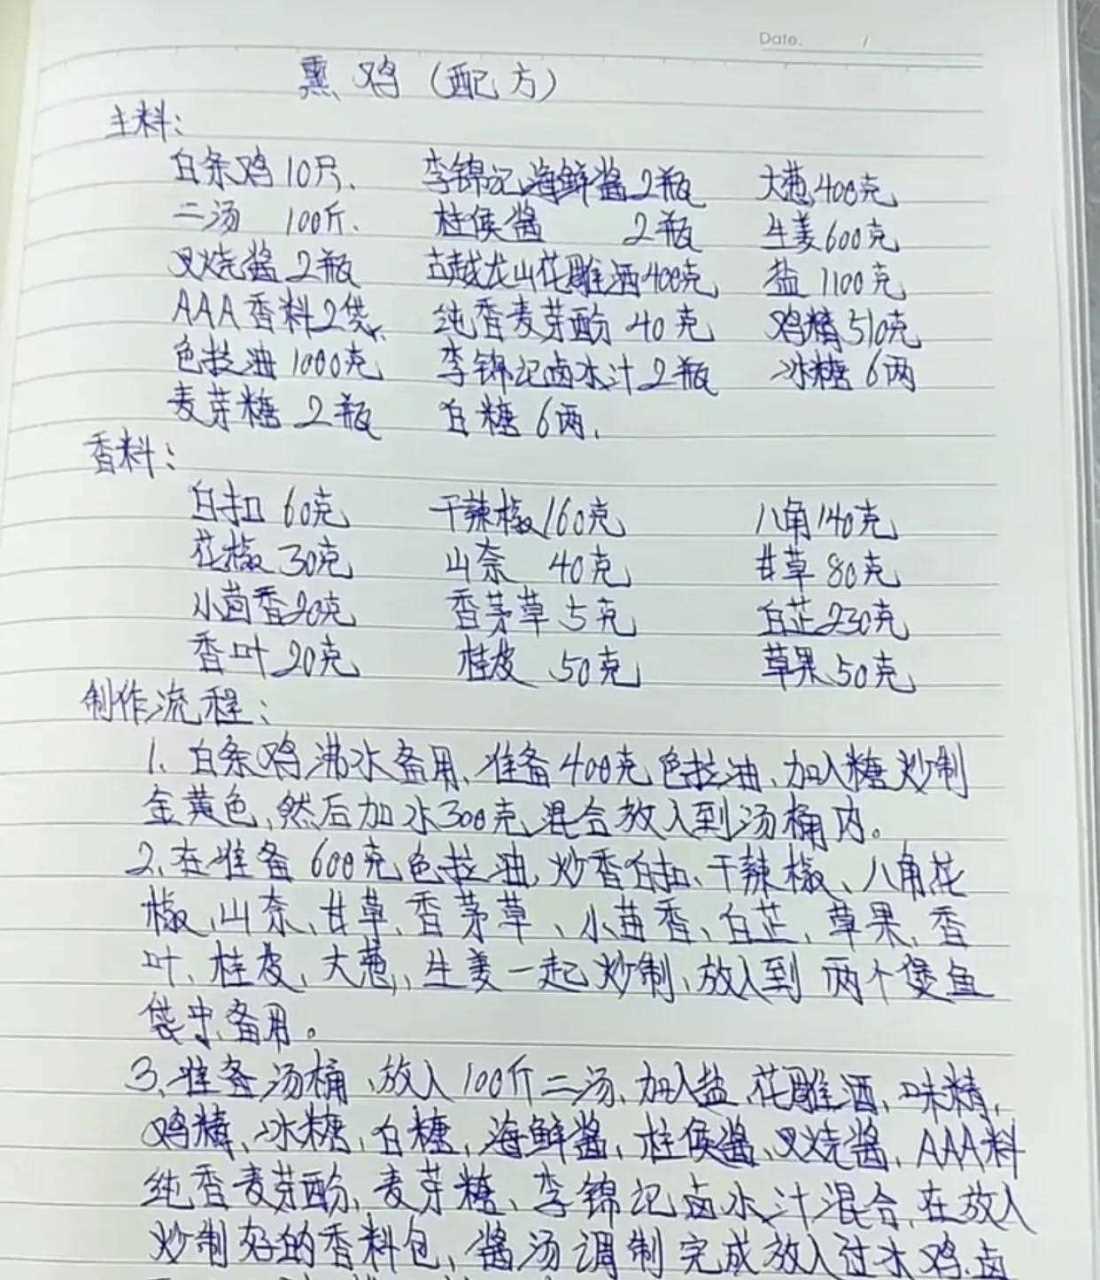 Date. /
熏鸡(配方)
主料:
白条鸡10只. 李锦记海鲜酱2瓶 大葱400克
二汤 100斤. 柱侯酱 2瓶 生姜600克
叉烧酱2瓶 古越龙山花雕酒400克 盐1100克
AAA香料2袋. 纯香麦芽酚40克 鸡精510克
色拉油1000克 李锦记卤水汁2瓶 冰糖6两
麦芽糖2瓶 白糖6两.
香料:
白扣60克 干辣椒160克 八角140克
花椒30克 山奈 40克 甘草80克
小茴香20克 香茅草5克 白芷230克
香叶20克 桂皮 50克 草果50克
制作流程:
1. 白条鸡沸水备用,准备400克色拉油,加入糖炒制
金黄色,然后加水300克混合放入到汤桶内。
2.在准备600克色拉油,炒香白扣、干辣椒、八角花
椒,山奈,甘草,香茅草、小茴香、白芷,草果,香
叶,桂皮,大葱,生姜一起炒制,放入到两个煲鱼
袋中备用。
3.准备汤桶、放入100斤二汤、加入盐,花雕酒,味精,
鸡精、冰糖,白糖,海鲜酱,柱侯酱、叉烧酱,AAA料
纯香麦芽酚,麦芽糖、李锦记卤水汁混合,在放入
炒制好的香料包、酱汤调制完成放入过水鸡,卤